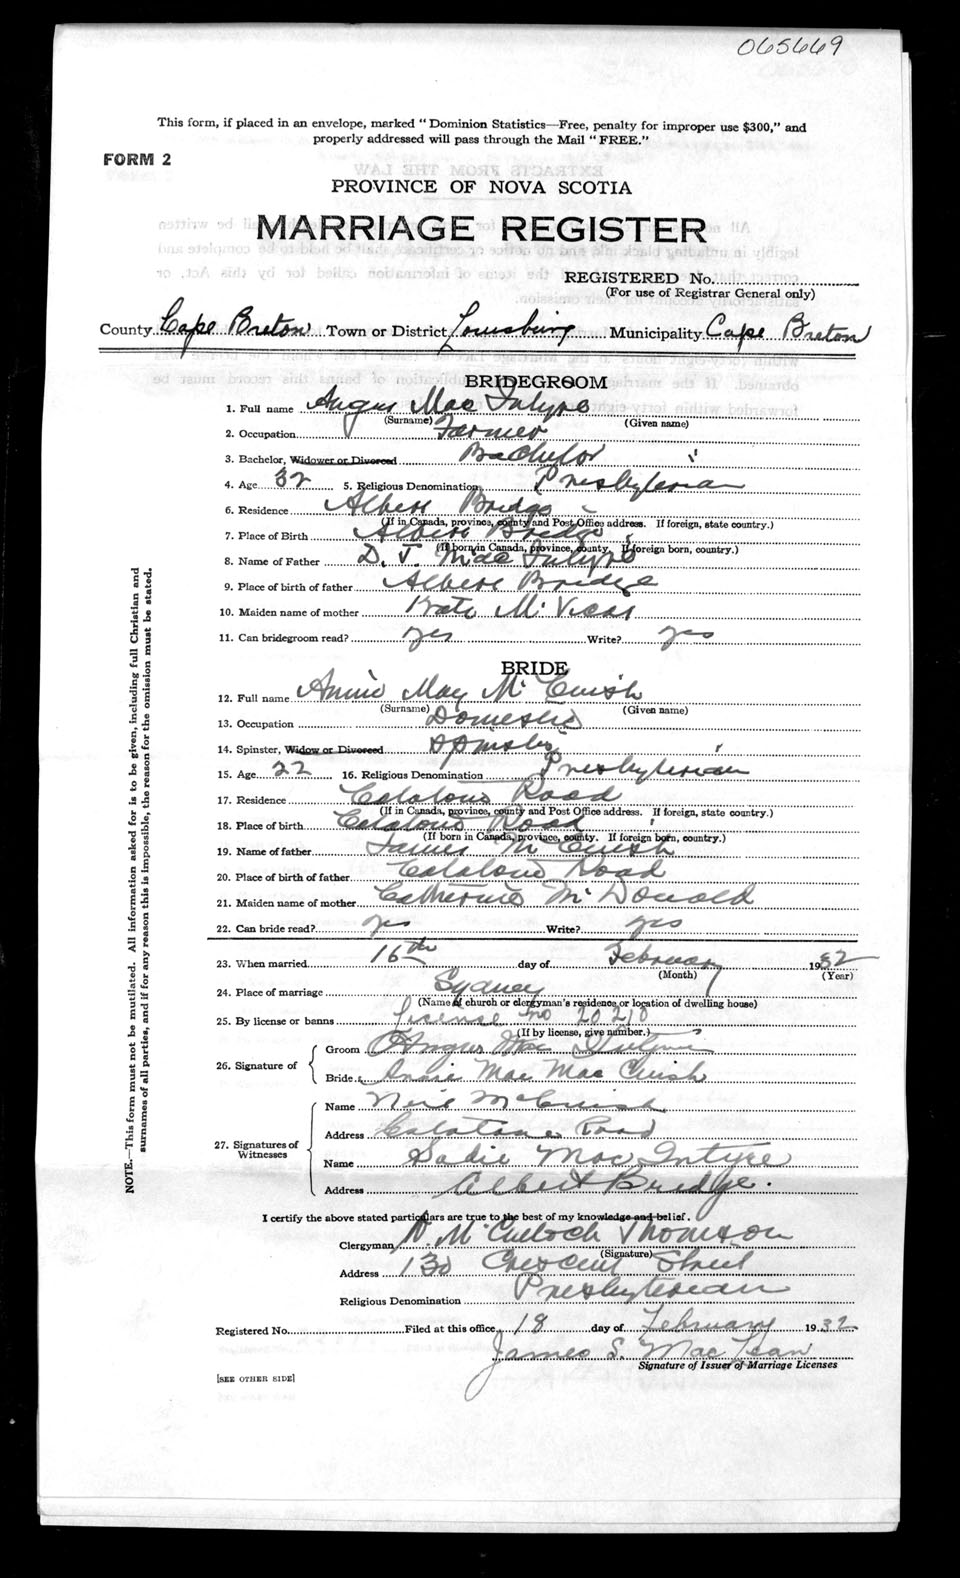 065669
This form, if placed in an envelope, marked "Dominion Statistics—Free, penalty for improper use $300," and
properly addressed will pass through the Mail "FREE."
FORM 2
PROVINCE OF NOVA SCOTIA
MARRIAGE REGISTER
REGISTERED No.
(For use of Registrar General only)
County Cape Breton Town or District Louisburg Municipality Cape Breton
BRIDEGROOM
1. Full name Angus Mac Intyre
(Surname) (Given name)
2. Occupation Farmer
3. Bachelor, Widower or Divorced Bachelor
4. Age 32 5. Religious Denomination Presbyterian
6. Residence Albert Bridge
(If in Canada, province, county and Post Office address. If foreign, state country.)
7. Place of Birth Albert Bridge
(If born in Canada, province, county. If foreign born, country.)
8. Name of Father D. J. Mac Intyre
9. Place of birth of father Albert Bridge
10. Maiden name of mother Kate McVicar
11. Can bridegroom read? yes Write? yes
BRIDE
12. Full name Annie May McCuish
(Surname) (Given name)
13. Occupation Domestic
14. Spinster, Widow or Divorced Spinster
15. Age 22 16. Religious Denomination Presbyterian
17. Residence Catalone Road
(If in Canada, province, county and Post Office address. If foreign, state country.)
18. Place of birth Catalone Road
(If born in Canada, province, county. If foreign born, country.)
19. Name of father James McCuish
20. Place of birth of father Catalone Road
21. Maiden name of mother Catherine McDonald
22. Can bride read? yes Write? yes
23. When married 16th day of February 1932
(Month) (Year)
24. Place of marriage Sydney
(Name of church or clergyman's residence or location of dwelling house)
25. By license or banns License no 20210
(If by license, give number.)
26. Signature of
Groom Angus Mac Intyre
Bride Annie Mae Mac Cuish
27. Signatures of Witnesses
Name Neil McCuish
Address Catalone Road
Name Sadie MacIntyre
Address Albert Bridge.
I certify the above stated particulars are true to the best of my knowledge and belief.
Clergyman McCulloch Thomson
(Signature)
Address 130 Crescent Street
Religious Denomination Presbyterian
Registered No. Filed at this office 18 day of February 1932
James S. MacLean
Signature of Issuer of Marriage Licenses
[SEE OTHER SIDE]
NOTE.—This form must not be mutilated. All information asked for is to be given, including full Christian and
surnames of all parties, and if for any reason this is impossible, the reason for the omission must be stated.